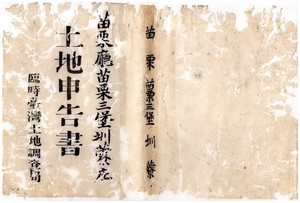 苗栗廳苗栗三堡圳藔庄
土地申告書
臨時臺灣土地調查局
苗栗
苗栗三堡
圳藔